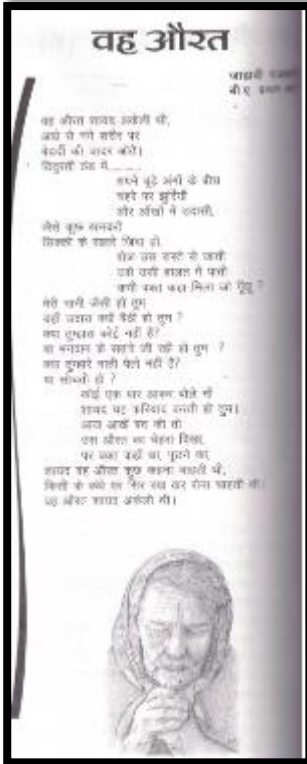 वह औरत
जाह्नवी
बी.ए. प्रथम
वह औरत शायद अकेली थी,
आधे से नंगे शरीर पर
बेदर्दी की चादर ओढे।
ठिठुरती ठंड में
अपने बूढ़े अंगों के बीच
चहरे पर झुर्रियाँ
और आँखों में उदासी,
जैसे कुछ
के सहारे जिंदा हो.
रोज उस रास्ते से जाती
उसे उसी हालत में पाती
कभी वक्त कहा मिला जो पूँछू ?
मेरी नानी जैसी हो तुम
यहाँ उदास क्यों बैठी हो तुम ?
क्या तुम्हारा कोई नहीं है?
या भगवान के सहारे जी रही हो तुम ?
क्या तुम्हारे नाती पोते नहीं है?
या सोचती हो ?
कोई एक बार आकर बोले माँ
शायद यह फरियाद करती हो तुम।
आज आखें बंद की तो
उस औरत का चेहरा दिखा,
पर वक्त कहाँ था, पूछने का,
शायद वह औरत कुछ कहना चाहती थी,
किसी के कंधे पर सिर रख कर रोना चाहती थी।
वह औरत शायद अकेली थी।